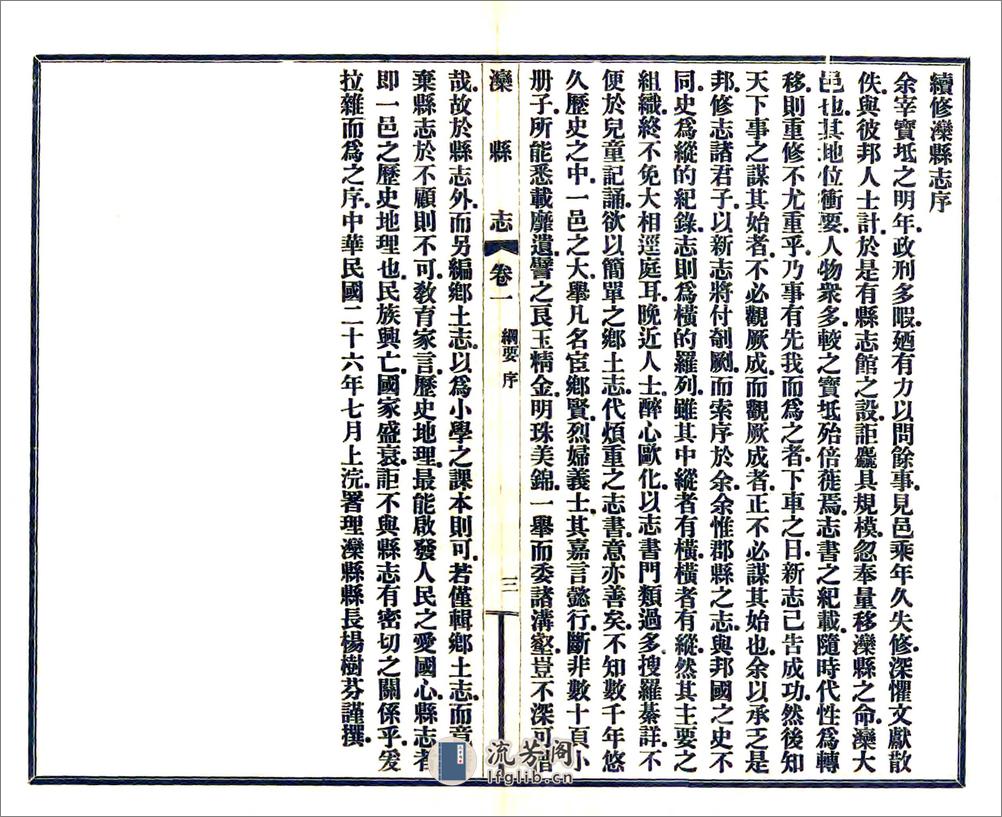 續修灤縣志序
余宰寶坻之明年政刑多暇廼有力以問餘事見邑乘年久失修深懼文獻散
佚與彼邦人士計於是有縣志館之設詎麤具規模忽奉量移灤縣之命灤大
邑也其地位衝要人物衆多較之寶坻殆倍蓰焉志書之紀載隨時代性爲轉
移則重修不尤重乎乃事有先我而爲之者下車之日新志已告成功然後知
天下事之謀其始者不必觀厥成而觀厥成者正不必謀其始也余以承乏是
邦修志諸君子以新志將付剞劂而索序於余余惟郡縣之志與邦國之史不
同史爲縱的紀錄志則爲橫的羅列雖其中縱者有橫橫者有縱然其主要之
組織終不免大相逕庭耳晚近人士醉心歐化以志書門類過多搜羅綦詳不
便於兒童記誦欲以簡單之鄉土志代煩重之志書意亦善矣不知數千年悠
久歷史之中一邑之大舉凡名宦鄉賢烈婦義士其嘉言懿行斷非數十頁小
册子所能悉載靡遺譬之良玉精金明珠美錦一舉而委諸溝壑豈不深可惜
灤縣志 卷一 綱要 序 三
哉故於縣志外而另編鄉土志以爲小學之課本則可若僅輯鄉土志而竟
棄縣志於不顧則不可教育家言歷史地理最能啟發人民之愛國心縣志者
即一邑之歷史地理也民族興亡國家盛衰詎不與縣志有密切之關係乎爰
拉雜而爲之序中華民國二十六年七月上浣署理灤縣縣長楊樹芬謹撰
流芳阁
lfglib.cn